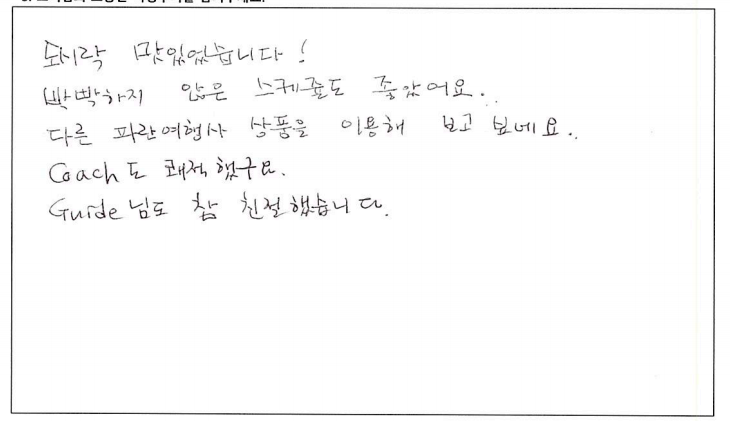 도시락 맛있었습니다!
빡빡하지 않은 스케쥴도 좋았어요..
다른 파란여행사 상품을 이용해 보고 보네요..
Coach도 쾌적했구요.
Guide님도 참 친절했습니다.